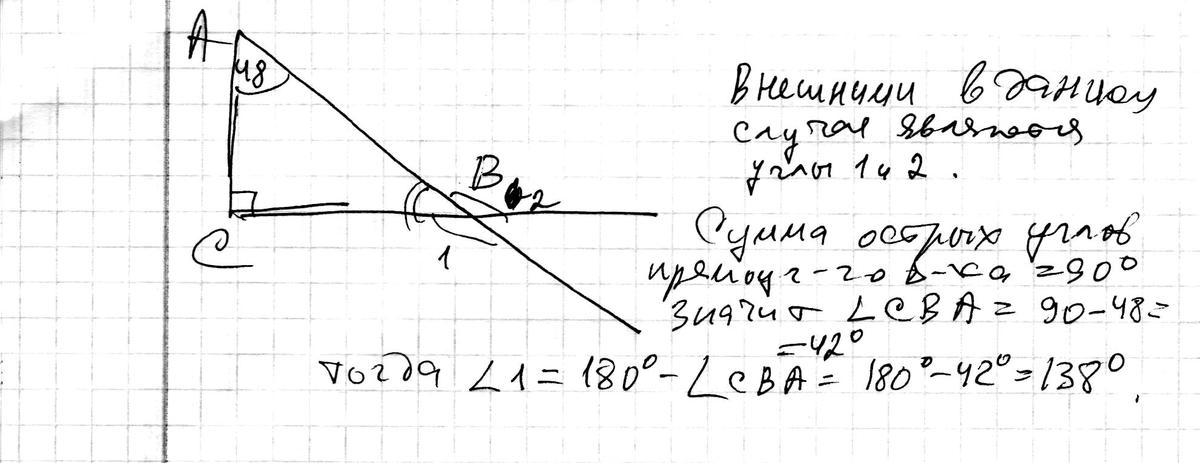 A
48
B
2
C
1
Внешними в данном
случае являются
углы 1 и 2.
Сумма острых углов
прямоуг-го Δ-ка = 90°
Значит ∠CBA = 90-48=
=42°
тогда ∠1 = 180° - ∠CBA = 180° - 42° = 138°.